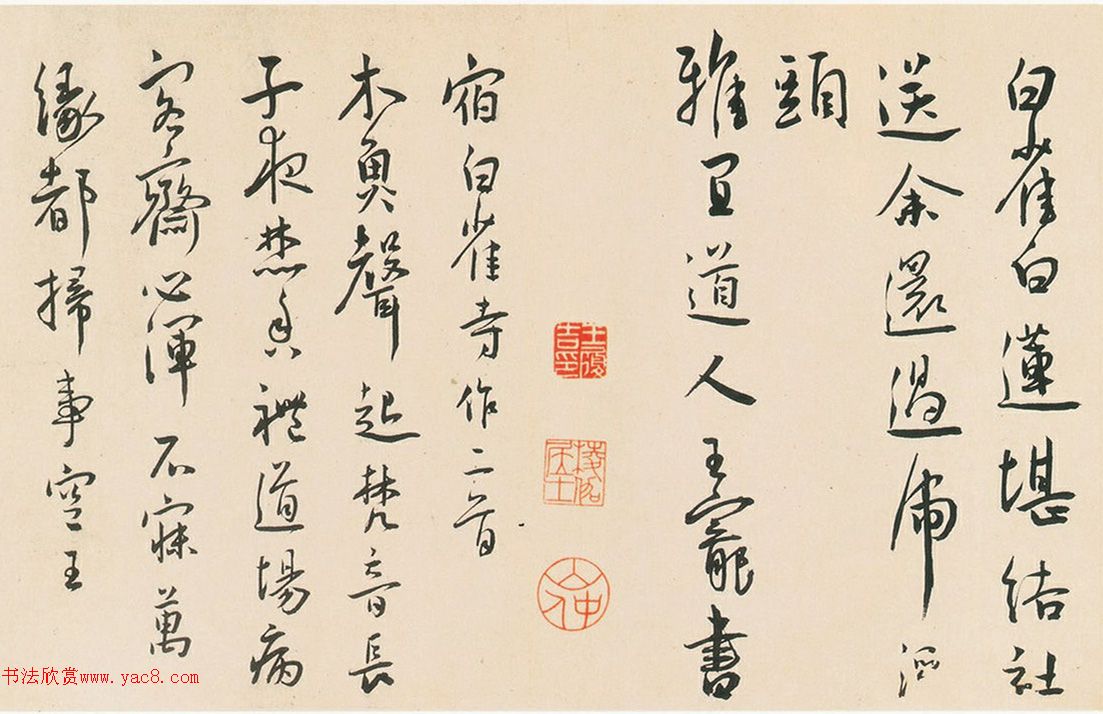 白雀白蓮堪結社
送余還過虎溪
頭
雅宜道人王寵書
王履吉印
宿白雀寺作二首
木魚聲起梵音長
子夜焚香禮道場病
客齋心渾不寐萬
緣都掃事空王
书法欣赏www.yac8.com